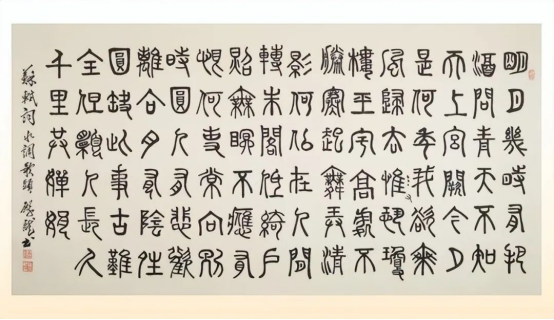 明月幾時有把
酒問青天不知
天上宮闕今夕
是何年我欲乘
風歸去惟恐瓊
樓玉宇高處不
勝寒起舞弄清
影何似在人間
轉朱閣低綺戶
照無眠不應有
恨何事常向別
時圓人有悲歡
離合月有陰晴
圓缺此事古難
全但願人長久
千里共嬋娟
蘇軾詞水調歌頭